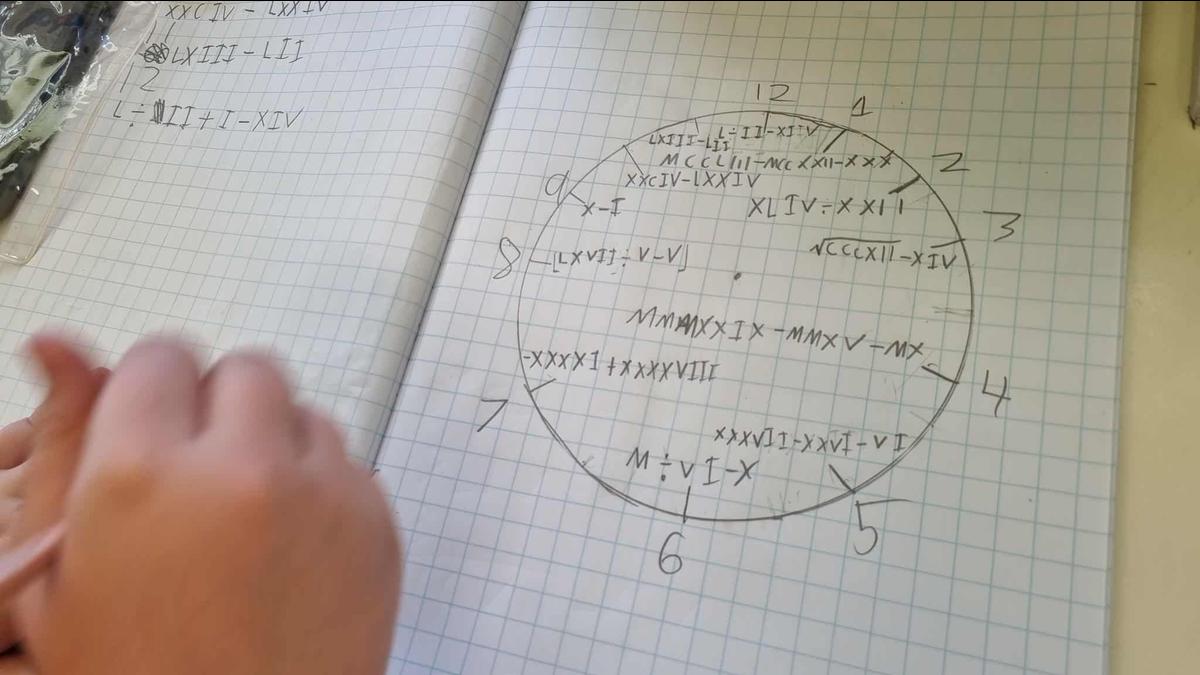 XXCIV - LXXIV
LXIII - LII
12
L ÷ II + I - XIV
12
1
2
3
4
5
6
7
8
9
L÷II-XIIV
LXIII-LII
MCCLIII-MCCXXII-XXX
XXCIV-LXXIV
XLIV÷XXII
X-I
√CCCXII-XIV
[LXVII÷V-V]
MMMXXIX-MMXV-MX
XXXXI+XXXXVIII
XXXVII-XXVI-VI
M÷VI-X